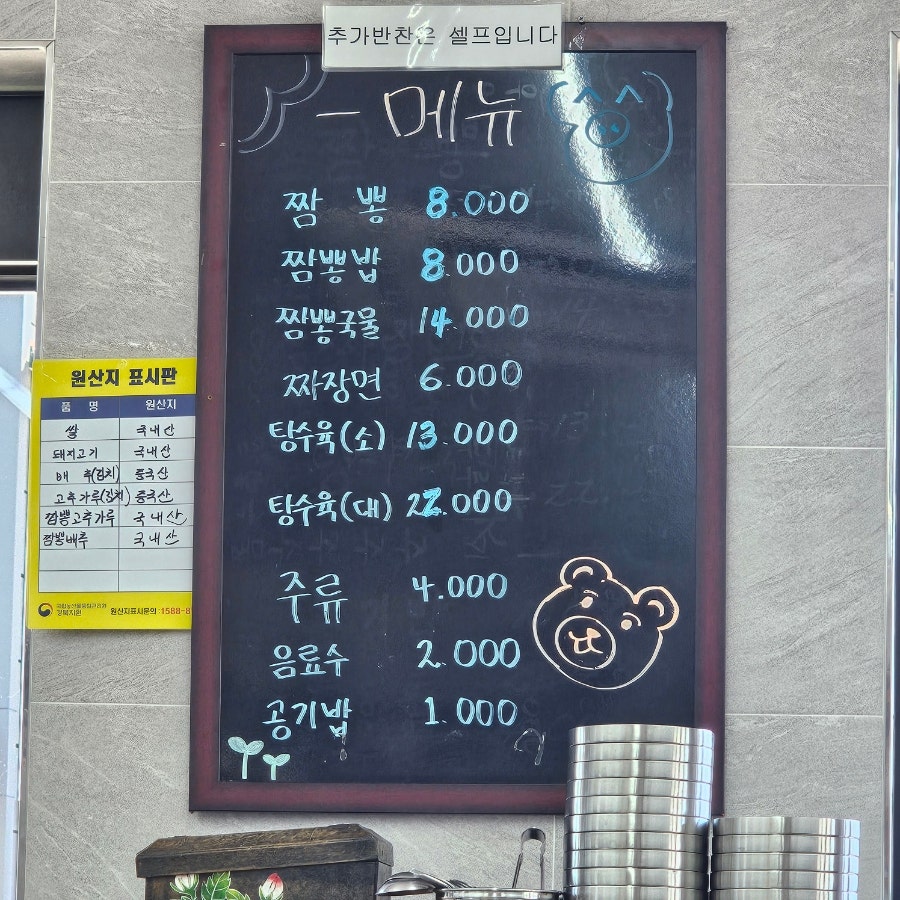 추가반찬은 셀프입니다
- 메뉴
짬 뽕 8.000
짬뽕밥 8.000
짬뽕국물 14.000
짜장면 6.000
탕수육(소) 13.000
탕수육(대) 22.000
주류 4.000
음료수 2.000
공기밥 1.000
원산지 표시판
품 명 원산지
쌀 국내산
돼지고기 국내산
배 추(김치) 중국산
고추가루(김치) 중국산
짬뽕고추가루 국내산
짬뽕배추 국내산
국립농산물품질관리원
경북지원 원산지표시문의 :1588-8